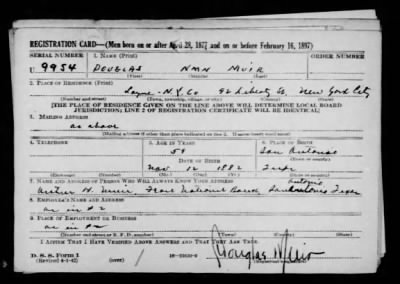 REGISTRATION CARD—(Men born on or after April 28, 1877 and on or before February 16, 1897)
SERIAL NUMBER 1. NAME (Print) ORDER NUMBER
U 9954 DOUGLAS NMN MUIR
(First) (Middle) (Last)
2. PLACE OF RESIDENCE (Print)
Layne-N.Y. Co 92 Liberty St. New York City
(Number and street) (Town, township, village, or city) (County) (State)
[THE PLACE OF RESIDENCE GIVEN ON THE LINE ABOVE WILL DETERMINE LOCAL BOARD
JURISDICTION; LINE 2 OF REGISTRATION CERTIFICATE WILL BE IDENTICAL]
3. MAILING ADDRESS
as above
[Mailing address if other than place indicated on line 2. If same insert word same]
4. TELEPHONE 5. AGE IN YEARS 6. PLACE OF BIRTH
59 San Antonio
DATE OF BIRTH (Town or county)
Nov. 12 1882 Texas
(Exchange) (Number) (Mo.) (Day) (Yr.) (State or country)
7. NAME AND ADDRESS OF PERSON WHO WILL ALWAYS KNOW YOUR ADDRESS
Muir National Bank San Antonio Texas
8. EMPLOYER'S NAME AND ADDRESS
as in #2
9. PLACE OF EMPLOYMENT OR BUSINESS
as in #2
(Number and street or R. F. D. number) (Town) (County) (State)
I AFFIRM THAT I HAVE VERIFIED ABOVE ANSWERS AND THAT THEY ARE TRUE.
D. S. S. Form 1
(Revised 4-1-42) (over) Douglas Muir